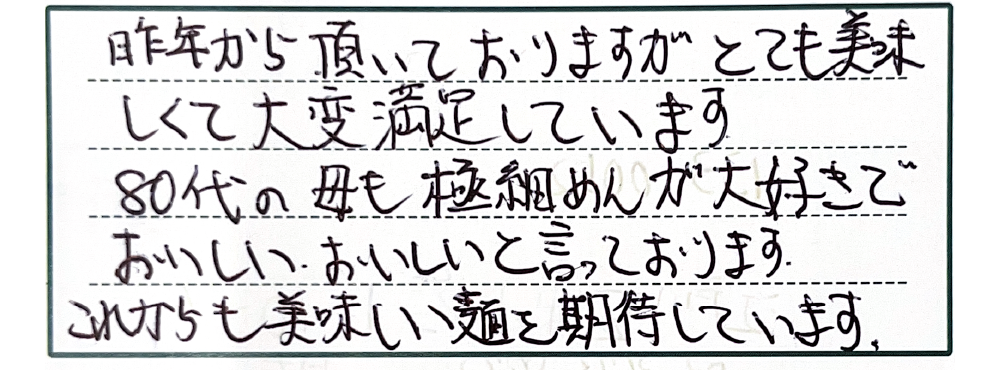 昨年から頂いておりますがとても美味
しくて大変満足しています
80代の母も極細めんが大好きで
おいしい.おいしいと言っております.
これからも美味しい麺を期待しています.